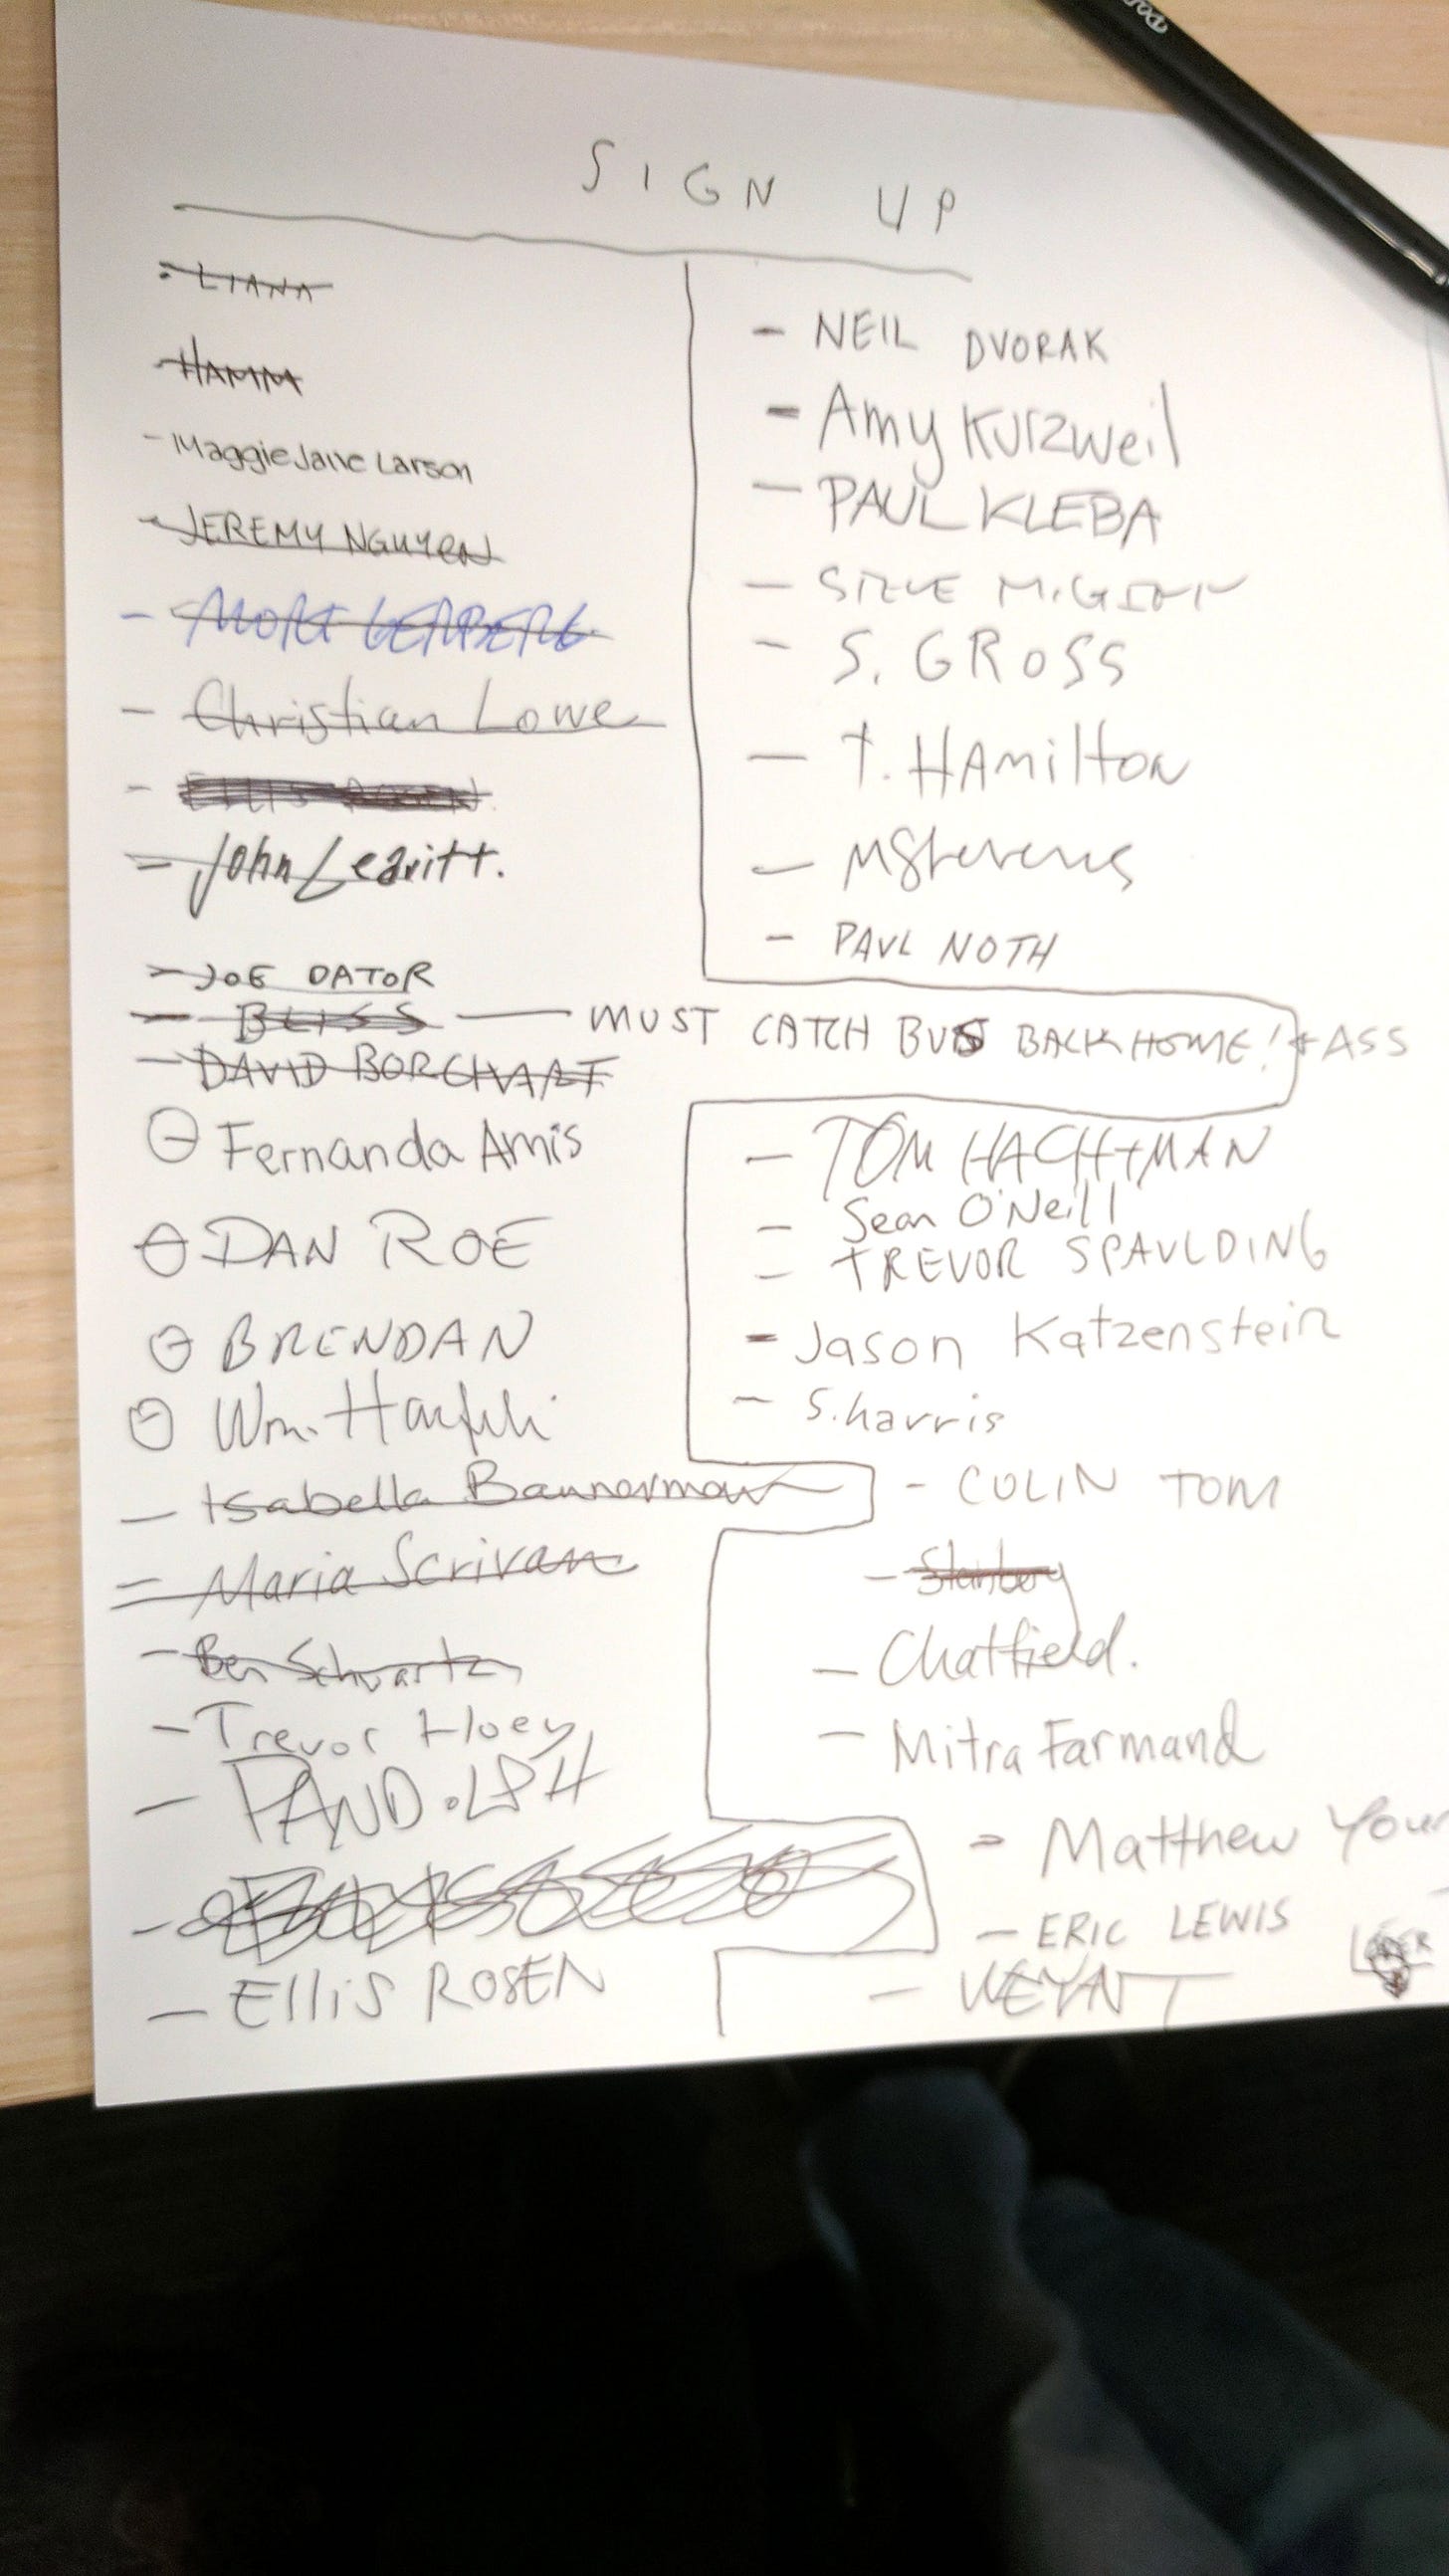 SIGN UP
LIANA
HAMM
- Maggie Jane Larson
- JEREMY NGUYEN
- MORT GERBERG
- Christian Lowe
- ELLIS ROSEN
- John Leavitt.
- JOE DATOR
- BLISS — MUST CATCH BUS BACK HOME! + ASS
- DAVID BORCHART
- Fernanda Amis
- DAN ROE
- BRENDAN
- Wm.
- Isabella Bannerman
- Maria Scrivan
- Ben Schwartz
- Trevor Hoey
-
-
- Ellis ROSEN
- NEIL DVORAK
- Amy Kurzweil
- PAUL KLEBA
- STEVE
- S. GROSS
- T. HAMilTON
- MStevens
- PAUL NOTH
- TOM HACHTMAN
- Sean O'Neill
- TREVOR SPAULDING
- Jason Katzenstein
- S. harris
- COLIN TOM
-
- Chatfield.
- Mitra Farmand
- Matthew
- ERIC LEWIS
- WEYNT